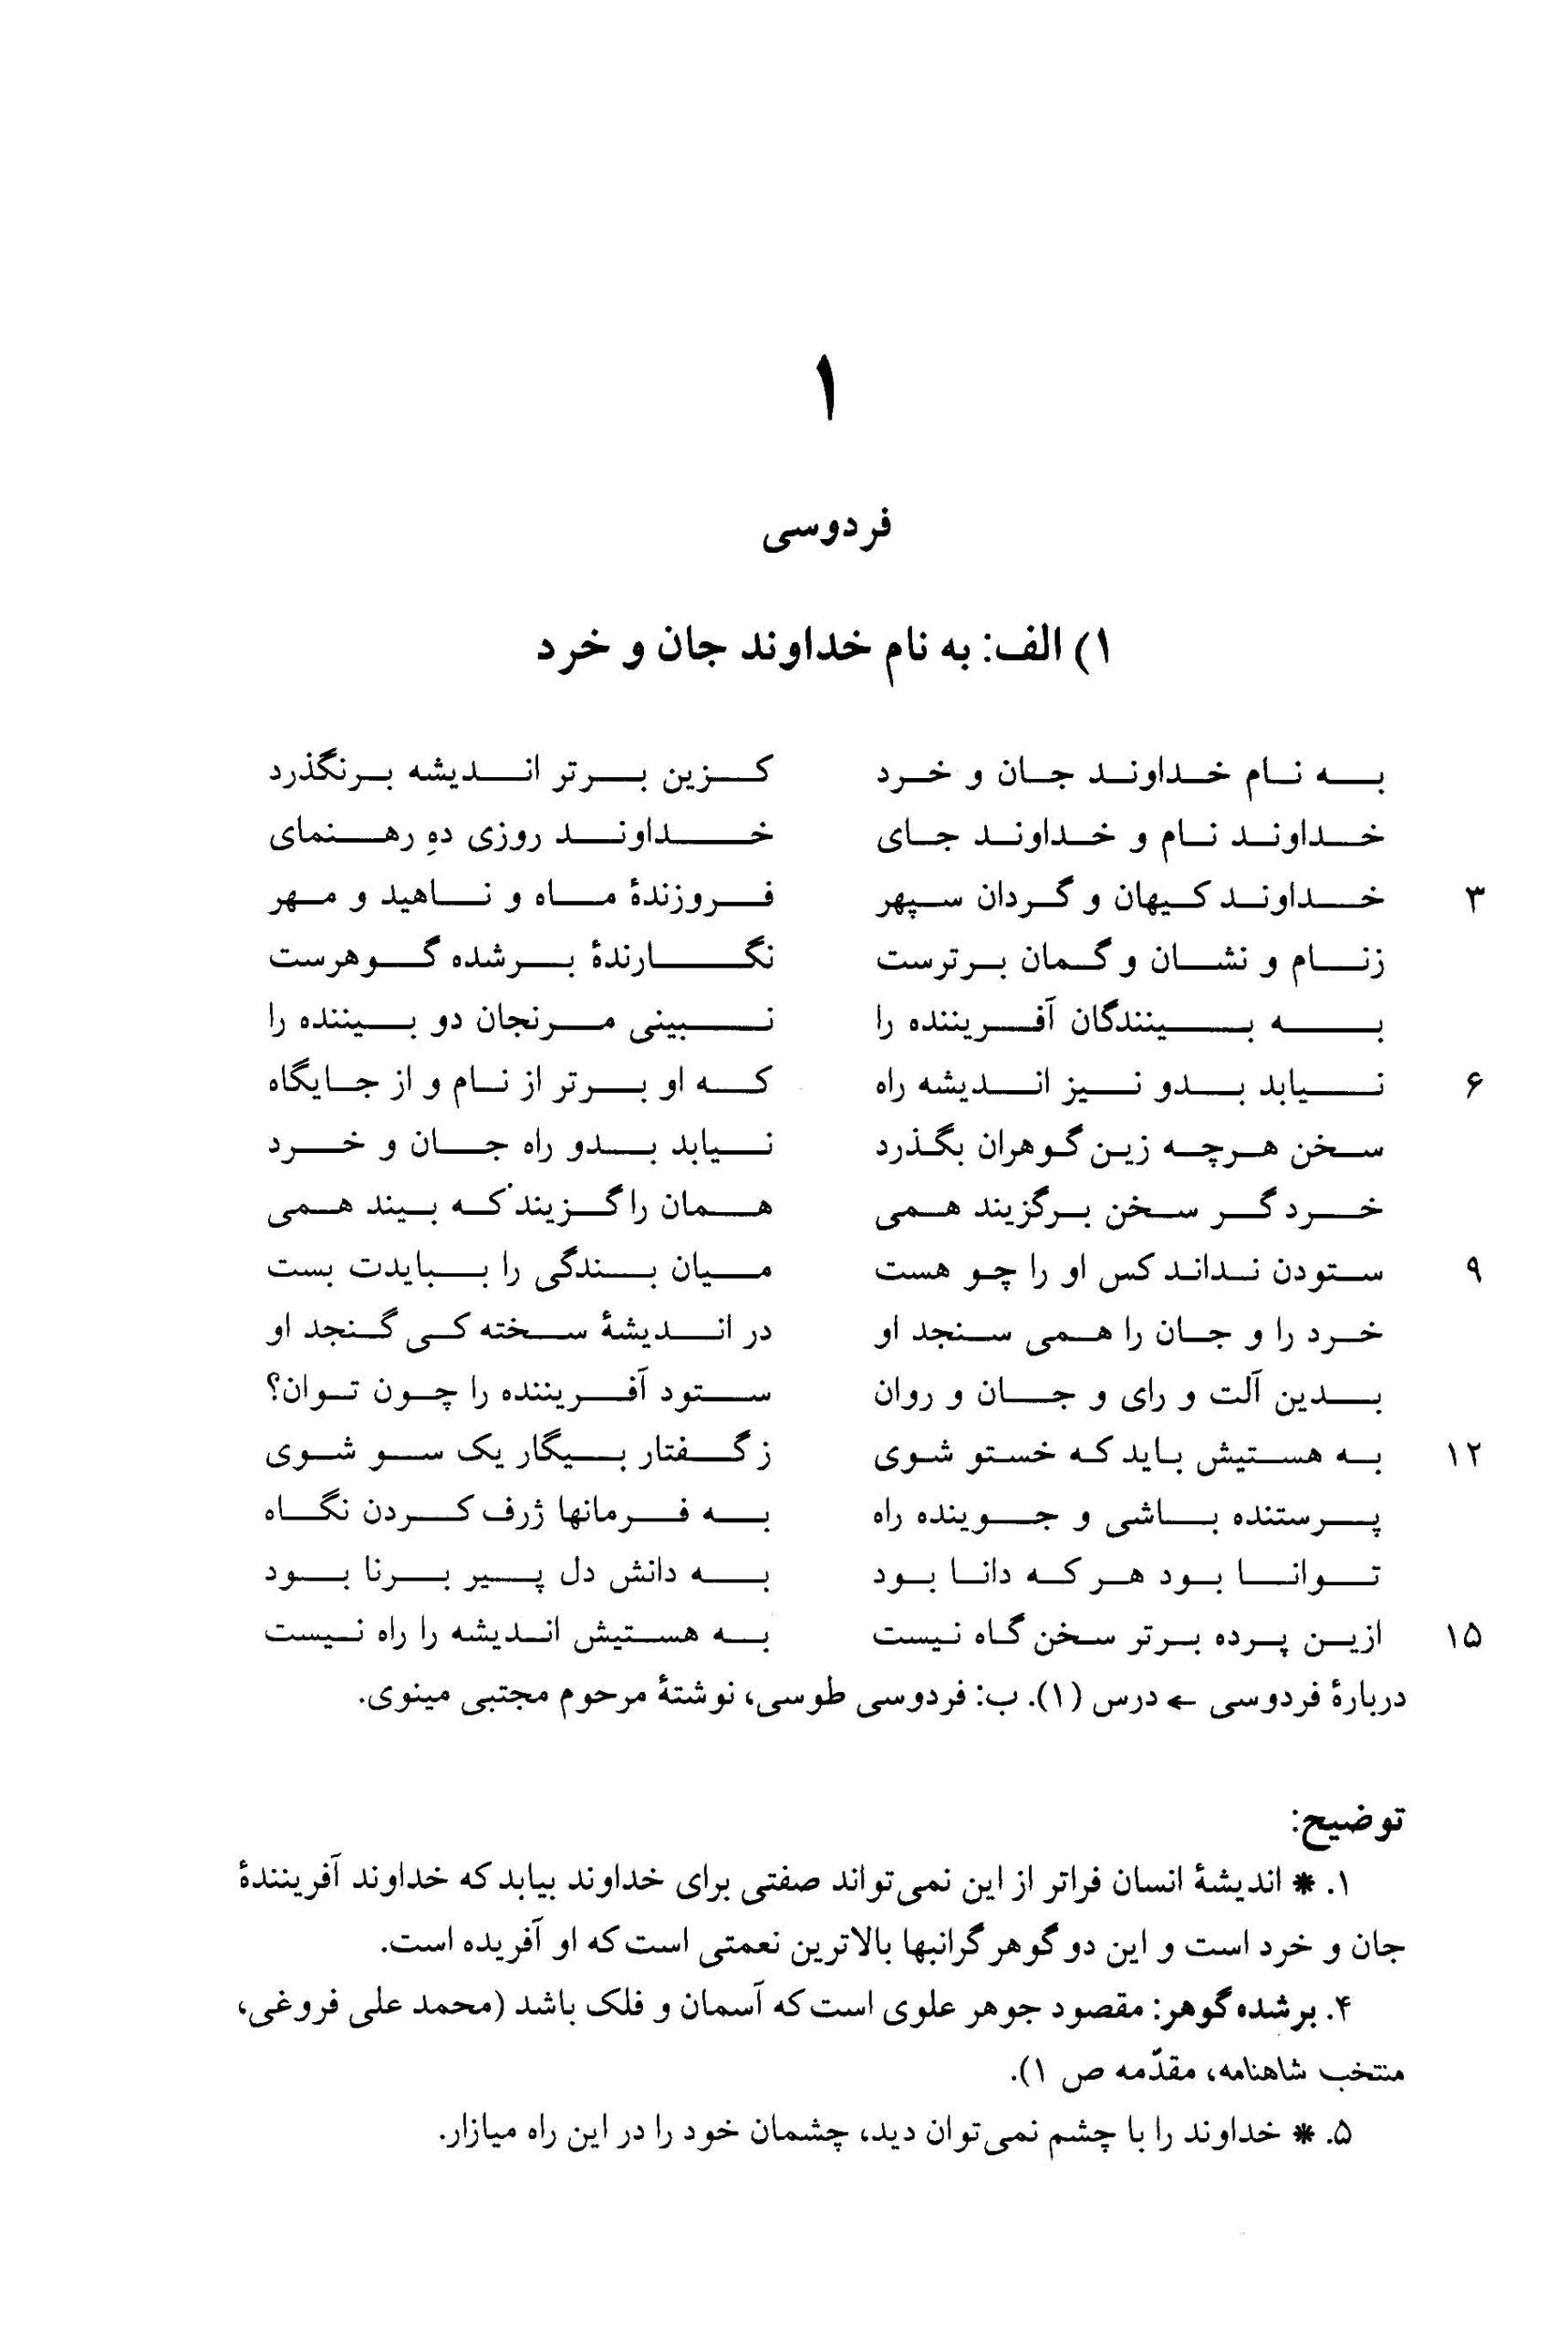 ۱
فردوسی
۱) الف: به نام خداوند جان و خرد
به نام خداوند جان و خرد کزین برتر اندیشه برنگذرد
خداوند نام و خداوند جای خداوند روزی دهِ رهنمای
۳ خداوند کیهان و گردان سپهر فروزندهٔ ماه و ناهید و مهر
زنام و نشان و گمان برترست نگارندهٔ برشده گوهرست
به بینندگان آفریننده را نبینی مرنجان دو بیننده را
۶ نیابد بدو نیز اندیشه راه که او برتر از نام و از جایگاه
سخن هرچه زین گوهران بگذرد نیابد بدو راه جان و خرد
خرد گر سخن برگزیند همی همان را گزیند که بیند همی
۹ ستودن نداند کس او را چو هست میان بندگی را ببایدت بست
خرد را و جان را همی سنجد او در اندیشهٔ سخته کی گنجد او
بدین آلت و رای و جان و روان ستود آفریننده را چون توان؟
۱۲ به هستیش باید که خستو شوی ز گفتار بیگار یک سو شوی
پرستنده باشی و جوینده راه به فرمانها ژرف کردن نگاه
توانا بود هر که دانا بود به دانش دل پیر برنا بود
۱۵ ازین پرده برتر سخن گاه نیست به هستیش اندیشه را راه نیست
دربارهٔ فردوسی ← درس (۱). ب: فردوسی طوسی، نوشتهٔ مرحوم مجتبی مینوی.
توضیح:
۱. * اندیشهٔ انسان فراتر از این نمی‌تواند صفتی برای خداوند بیابد که خداوند آفرینندهٔ
جان و خرد است و این دو گوهر گرانبها بالاترین نعمتی است که او آفریده است.
۴. برشده گوهر: مقصود جوهر علوی است که آسمان و فلک باشد (محمد علی فروغی،
منتخب شاهنامه، مقدّمه ص ۱).
۵. * خداوند را با چشم نمی‌توان دید، چشمان خود را در این راه میازار.